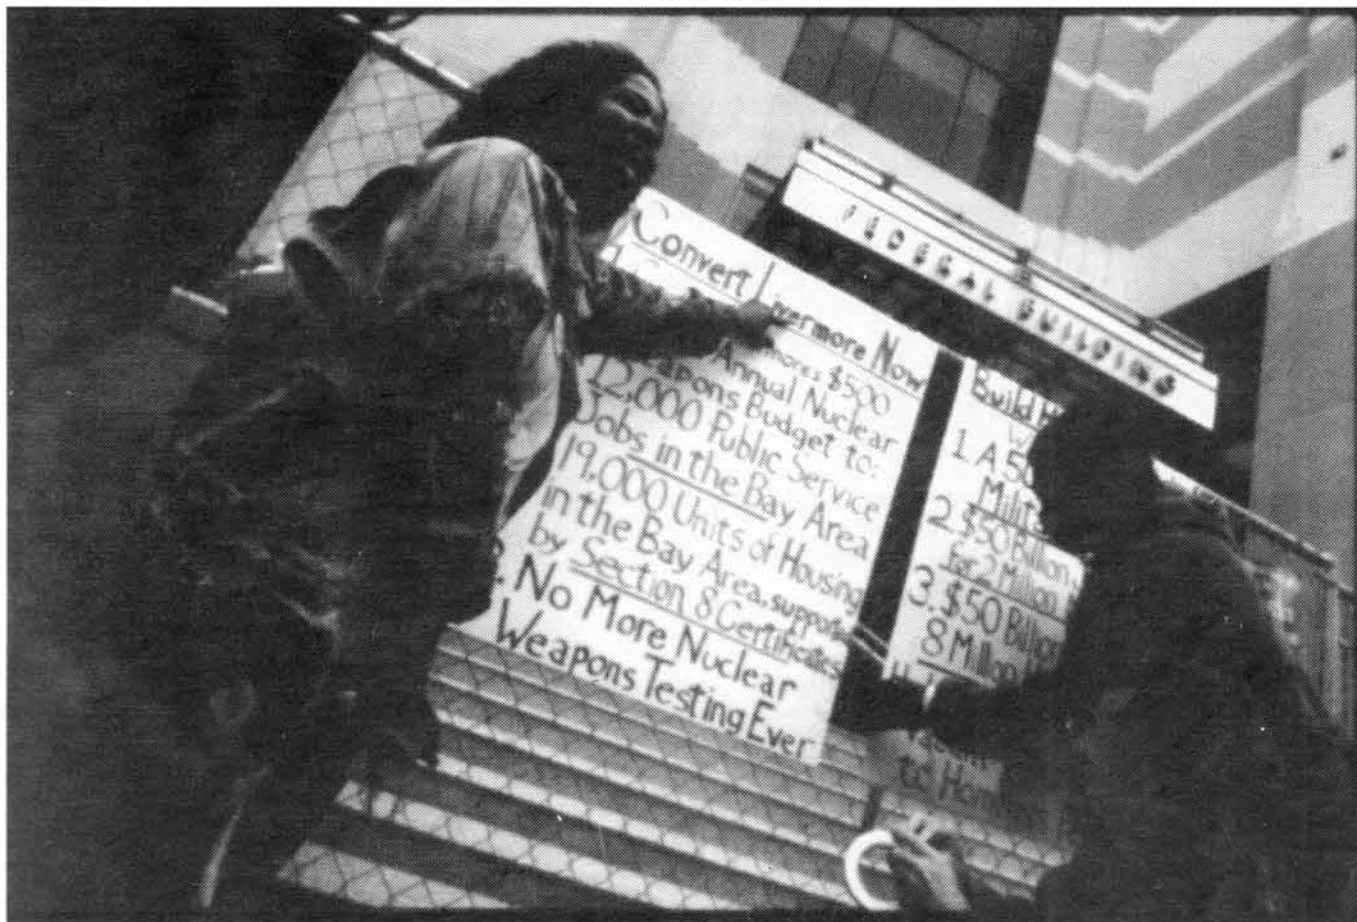 FEDERAL BUILDING
Convert Livermore Now
$500
Annual Nuclear
Weapons Budget to:
12,000 Public Service
Jobs in the Bay Area
19,000 Units of Housing
in the Bay Area, supported
by Section 8 Certificates
No More Nuclear
Weapons Testing Ever
Build
1 A 50
2. $50 Billion
for 2 Million
3. $50 Billion
8 Million
to